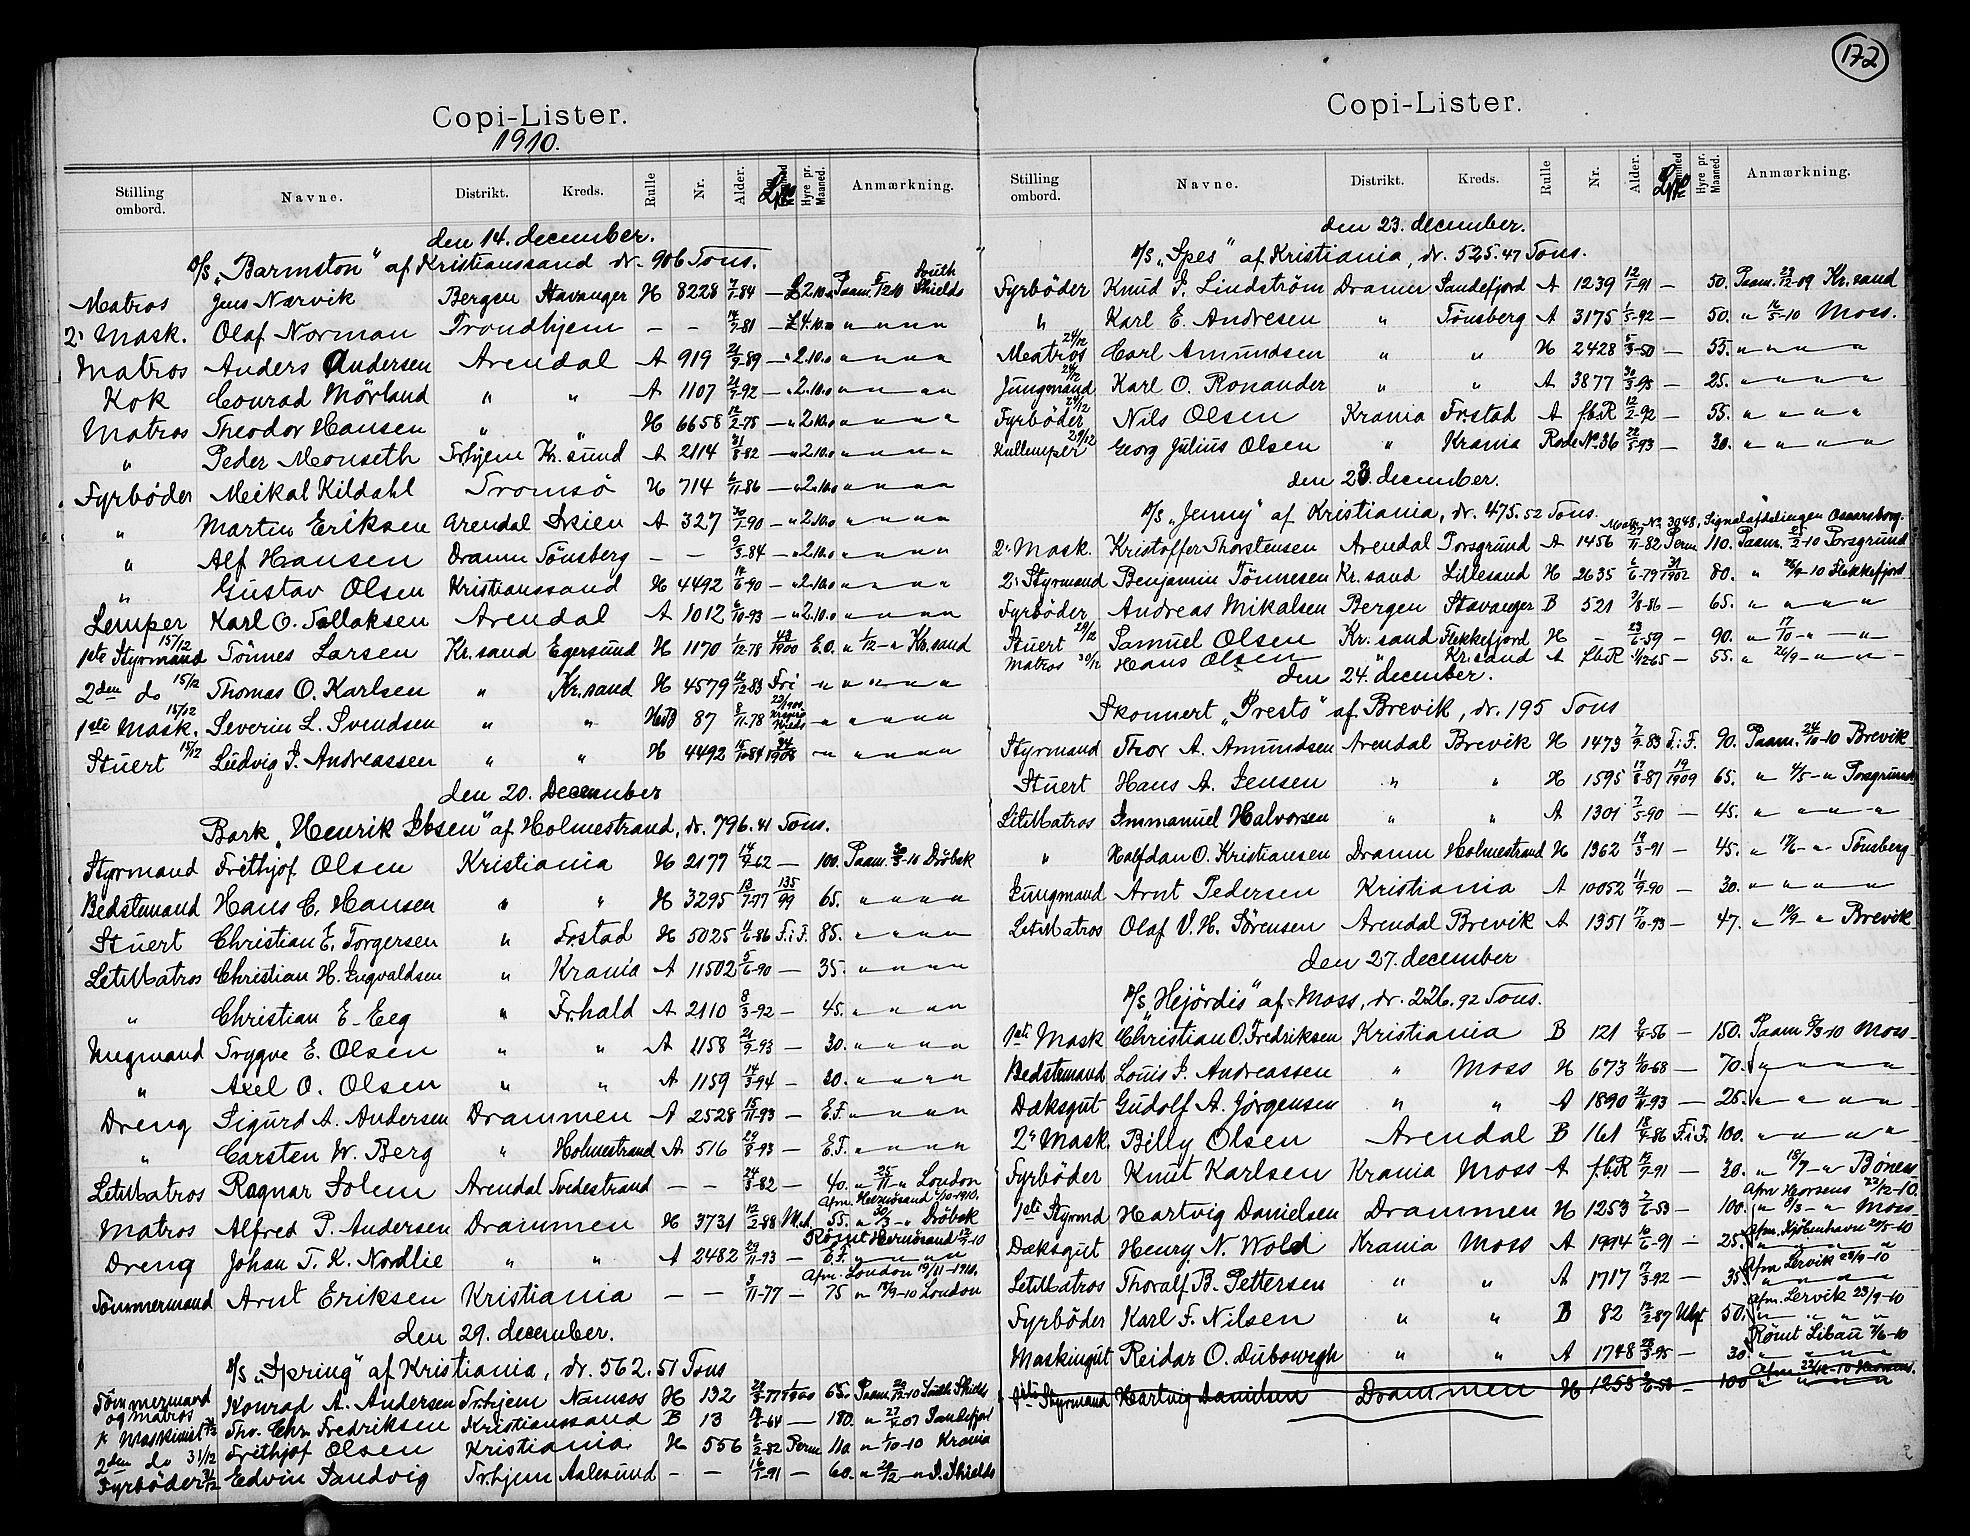 172
Copi-Lister.
1910.
Stilling ombord. Navne. Distrikt. Kreds. Rulle Nr. Alder. Hyre pr. Maaned. Anmærkning.
den 14. december.
S/S „Barmston" af Kristianssand dr. 906 Tons.
Matros Jens Nærvik Bergen Stavanger H 8228 7/1-84 — £2.10.0 Paam. 5/12 10 South Shields
2. Mask. Olaf Norman Trondhjem — — 14/7-81 — £4.10.0 " " " " "
Matros Anders Andersen Arendal A 919 21/9-89 — " 2.10.0 " " " " "
Kok Conrad Mörland " " A 1107 21/7-92 — " 2.10.0 " " " " "
Matros Theodor Hansen " " H 6658 12/2-75 — " 2.10.0 " " " " "
" Peder Monseth Trhjem Kr. sund A 2114 31/8-82 — " 2.10.0 " " " " "
Fyrbøder Meikal Kildahl Tromsö H 714 6/11-86 — " 2.10.0 " " " " "
" Martin Eriksen Arendal Skien A 327 30/1-90 — " 2.10.0 " " " " "
" Alf Hansen Dramn Tönsberg — — 9/3-84 — " 2.10.0 " " " " "
" Gustav Olsen Kristianssand H 4492 14/6-90 — " 2.10.0 " " " " "
Lemper Karl O. Tallaksen Arendal A 1012 6/10-93 — " 2.10.0 " " " " "
1ste Styrmand 15/12 Tönnes Larsen Kr. sand Egersund H 1170 1/12-78 43/1900 E.O. " 1/12 - " Kr. sand
2den do 15/12 Thomas O. Karlsen " Kr. sand H 4579 12/12-83 Fri " " " " "
1ste Mask. 15/12 Severin L. Svendsen " " 87 8/11-78 " " " " "
Stuert 15/12 Ludvig J. Andreassen " " H 4492 15/10-84 " " " " "
den 20. December
Bark „Henrik Ibsen" af Holmestrand, dr. 796.41 Tons.
Styrmand Frithjof Olsen Kristiania H 2177 14/9-62 — 100. Paam. 30/3-10 Dröbak
Bedstemand Hans C. Hansen " " H 3295 13/7-77 135/99 65. " " " "
Stuert Christian E. Torgersen " Fr.stad H 5025 11/6-86 F.i.F. 85. " " " "
LetMatros Christian H. Engvaldsen " Krania A 11502 5/6-90 — 35. " " " "
" Christian E. Eeg " Fr.hald A 2110 8/3-92 — 45. " " " "
Ungmand Trygve E. Olsen " " A 1158 21/9-93 — 30. " " " "
" Axel O. Olsen " " A 1159 14/3-94 — 20. " " " "
Dreng Sigurd A. Andersen Drammen A 2528 15/11-93 — E.F. " " " "
" Carsten W. Berg " Holmestrand A 516 29/8-93 — E.F. " " " "
LetMatros Ragnar Solem Arendal Tvedestrand — — 24/3-82 — 40. " 25/11 - " London
Matros Alfred P. Andersen Drammen H 3731 12/2-88 55. " 30/3 - " Dröbak
Dreng Johan T. K. Nordlie " " A 2482 29/11-93 — E.F. " " " "
Afm. London 19/11-1910.
Tömmermand Arnt Eriksen Kristiania — — 3/11-77 — 75 " 15/9-10 London
den 29. december.
S/S „Spring" af Kristiania, dr. 562.51 Tons
Tömmermand og matros Konrad A. Andersen Trhjem Namsos H 132 65. Paam. South Shields
Maskinist Thv. Chr. Fredriksen Kristianssand B 13 — 180. " Sandefjord
2den do 31/12 Frithjof Olsen Kristiania H 556 2/2-82 Perm 110. " 1/10-10 Krania
Fyrbøder 31/12 Edvin Sandvig Trhjem Aalesund — — 16/1-91 — 60. " 20/12 - " S. Shields
Copi-Lister.
Stilling ombord. Navne. Distrikt. Kreds. Rulle Nr. Alder. Hyre pr. Maaned. Anmærkning.
den 23. december.
S/S „Spes" af Kristiania, dr. 525.47 Tons.
Fyrbøder Knud J. Lindström Dramn Sandefjord A 1239 12/1-91 — 50. Paam. 23/12-09 Kr. sand
" Karl E. Andresen " Tönsberg A 3175 1/5-92 — 50. " 16/5-10 Moss.
Matros 24/12 Carl Amundsen " " H 2428 5/3-50 — 55. " " " "
Jungmand 24/12 Karl O. Ronander " " A 3877 30/3-95 — 25. " " " "
Fyrbøder 24/12 Nils Olsen Krania Fr.stad A f.b.R 12/2-92 — 55. " " " "
Kullemper 29/12 Georg Julius Olsen " Krania Rode No 36 22/5-93 — 30. " " " "
den 23. december.
S/S „Jenny" af Kristiania, dr. 475.52 Tons.
Matr. No 3048, Signalafdelingen
2. Mask. Kristoffer Thorstensen Arendal Porsgrund A 1456 27/11-82 Perm 110. Paam. 2/2-10 Porsgrund
2. Styrmand Benjamin Tönnesen Kr. sand Lillesand H 2635 6/6-79 31/1902 80. " 26/9-10 Flekkefjord
Fyrbøder Andreas Mikalsen Bergen Stavanger B 521 3/8-86 — 65. " " " "
Stuert 29/12 Samuel Olsen Kr. sand Flekkefjord H — 23/6-59 — 90. " 17/10 - " - "
Matros 30/12 Hans Olsen " Kr. sand A f.b.R 1/12-65 — 55. " 26/9 - " - "
den 24. december.
Skonnert „Presto" af Brevik, dr. 195 Tons
Styrmand Thor A. Amundsen Arendal Brevik H 1473 7/9-83 F.i.F. 90. Paam. 24/10-10 Brevik
Stuert Hans A. Jensen " " H 1595 19/8-87 19/1909 65. " 4/5 - " Porsgrund
LetMatros Immanuel Halvorsen " " A 1301 7/5-90 — 45. " " " "
" Halfdan O. Kristiansen Dramn Holmestrand H 1362 13/3-91 — 45. " 17/6 - " Tönsberg
Jungmand Arnt Pedersen Kristiania A 10052 11/9-90 — 30. " " " "
LetMatros Olaf V. H. Sörensen Arendal Brevik A 1351 17/10-93 — 47. " 19/9 - " Brevik
den 27. december
S/S „Hejördis" af Moss, dr. 226.92 Tons.
1ste Mask Christian O. Fredriksen Kristiania B 121 9/6-56 — 150. Paam 8/3-10 Moss
Bedstemand Louis J. Andreassen " Moss H 673 11/10-68 — 70. " " " "
Dæksgut Gudolf A. Jörgensen " " A 1890 21/11-93 — 25. " " " "
2. Mask. Billy Olsen Arendal B 161 18/9-86 F.i.F. 100. " " " "
Fyrbøder Knut Karlsen Krania Moss A f.b.R 12/7-91 — 30. " 15/7 - "
Afm Horsens 22/12-10.
1ste Styrmd Hartvig Danielsen Drammen H 1253 2/6-53 — 100. " 8/3 - " Moss
Afm. Kjöbenhavn 29/5-10
Dæksgut Henry N. Wold Krania Moss A 1994 10/6-91 — 25. " " " "
Afm Lervik 23/9-10
LetMatros Thoralf B. Pettersen " " A 1717 17/3-92 — 35. " " " "
Afm. Lervik 23/9-10
Fyrbøder Karl F. Nilsen " " B 82 12/2-87 50. " " " "
Römt Libau 7/6-10
Maskingut Reidar O. Dubowrgh " " A 1748 28/3-95 — 30. " " " "
1ste Styrmand Hartvig Danielsen Drammen H 1253 2/6-53 — 100 " " " "